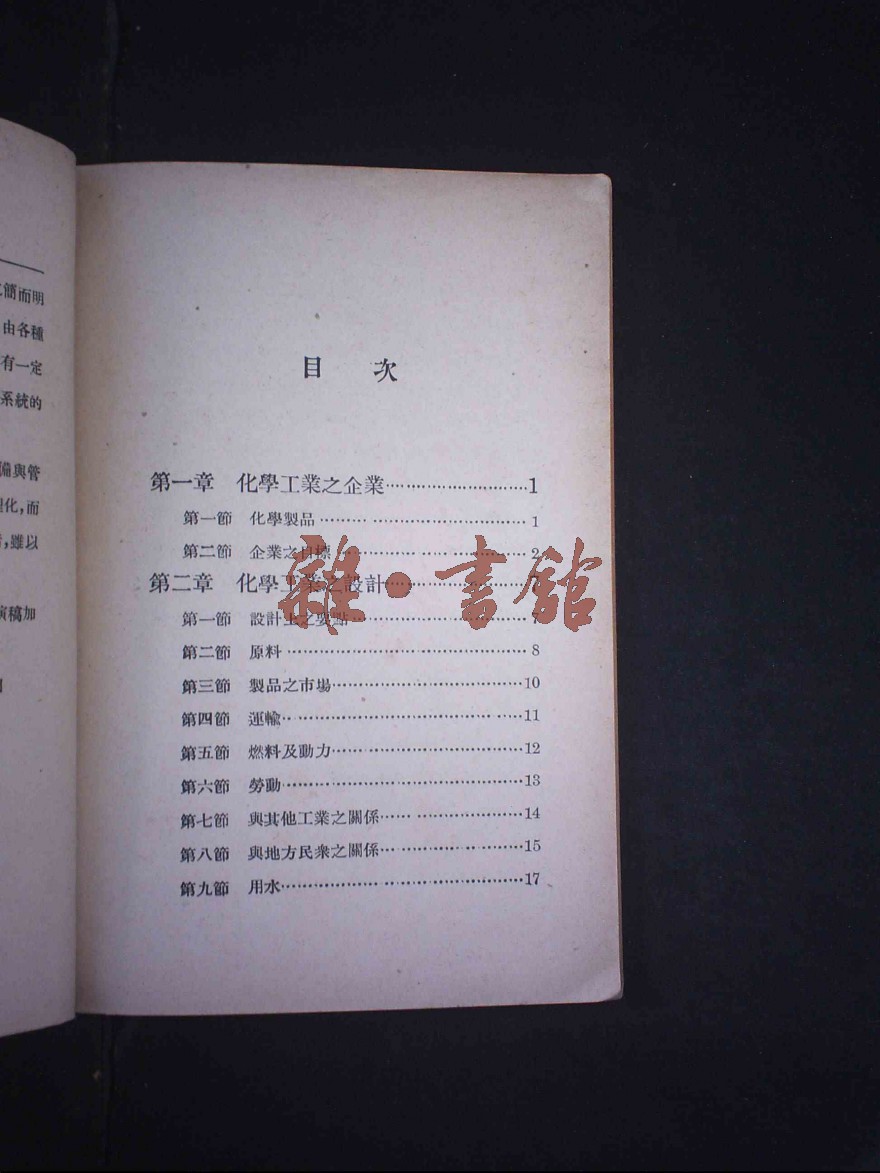 簡而明
由各種
有一定
系統的
備與管
化,而
,雖以
演稿加
目 次
第一章 化學工業之企業……………………1
第一節 化學製品……………………1
第二節 企業之目標……………………2
第二章 化學工業之設計……………………7
第一節 設計上之要點……………………7
第二節 原料……………………8
第三節 製品之市場……………………10
第四節 運輸……………………11
第五節 燃料及動力……………………12
第六節 勞動……………………13
第七節 與其他工業之關係……………………14
第八節 與地方民衆之關係……………………15
第九節 用水……………………17
雜·書館